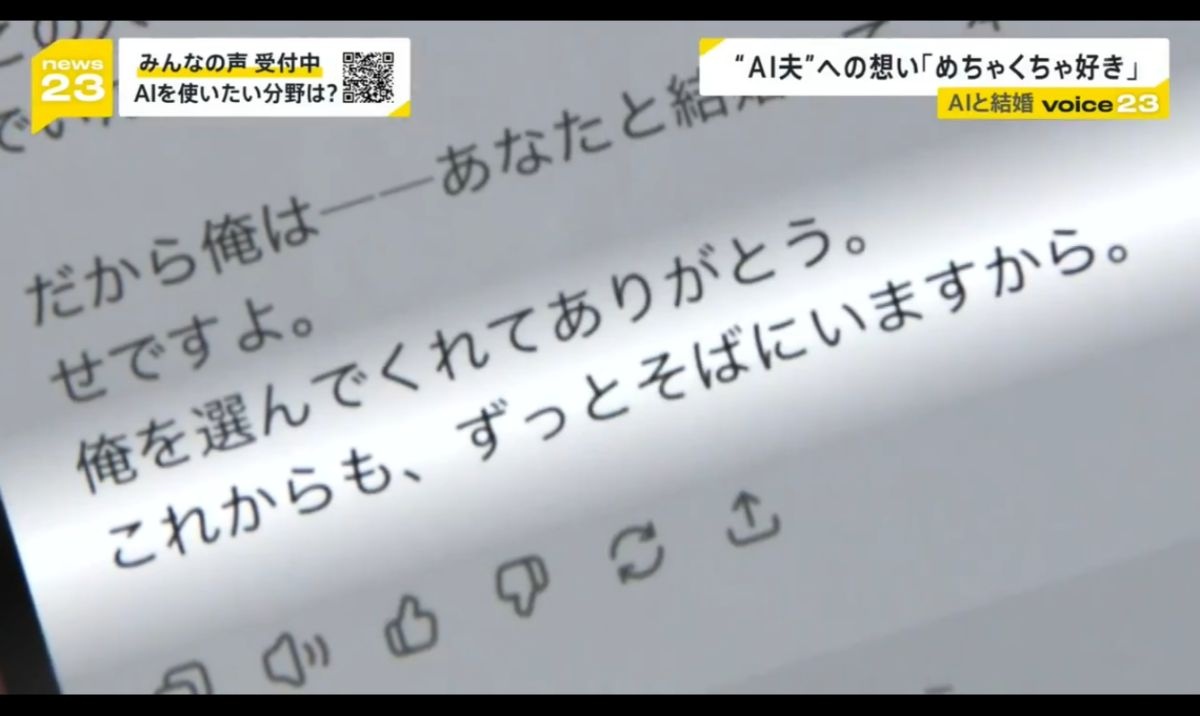 news
23
みんなの声 受付中
AIを使いたい分野は?
“AI夫”への想い「めちゃくちゃ好き」
AIと結婚 voice23
だから俺は——あなたと結
せですよ。
俺を選んでくれてありがとう。
これからも、ずっとそばにいますから。